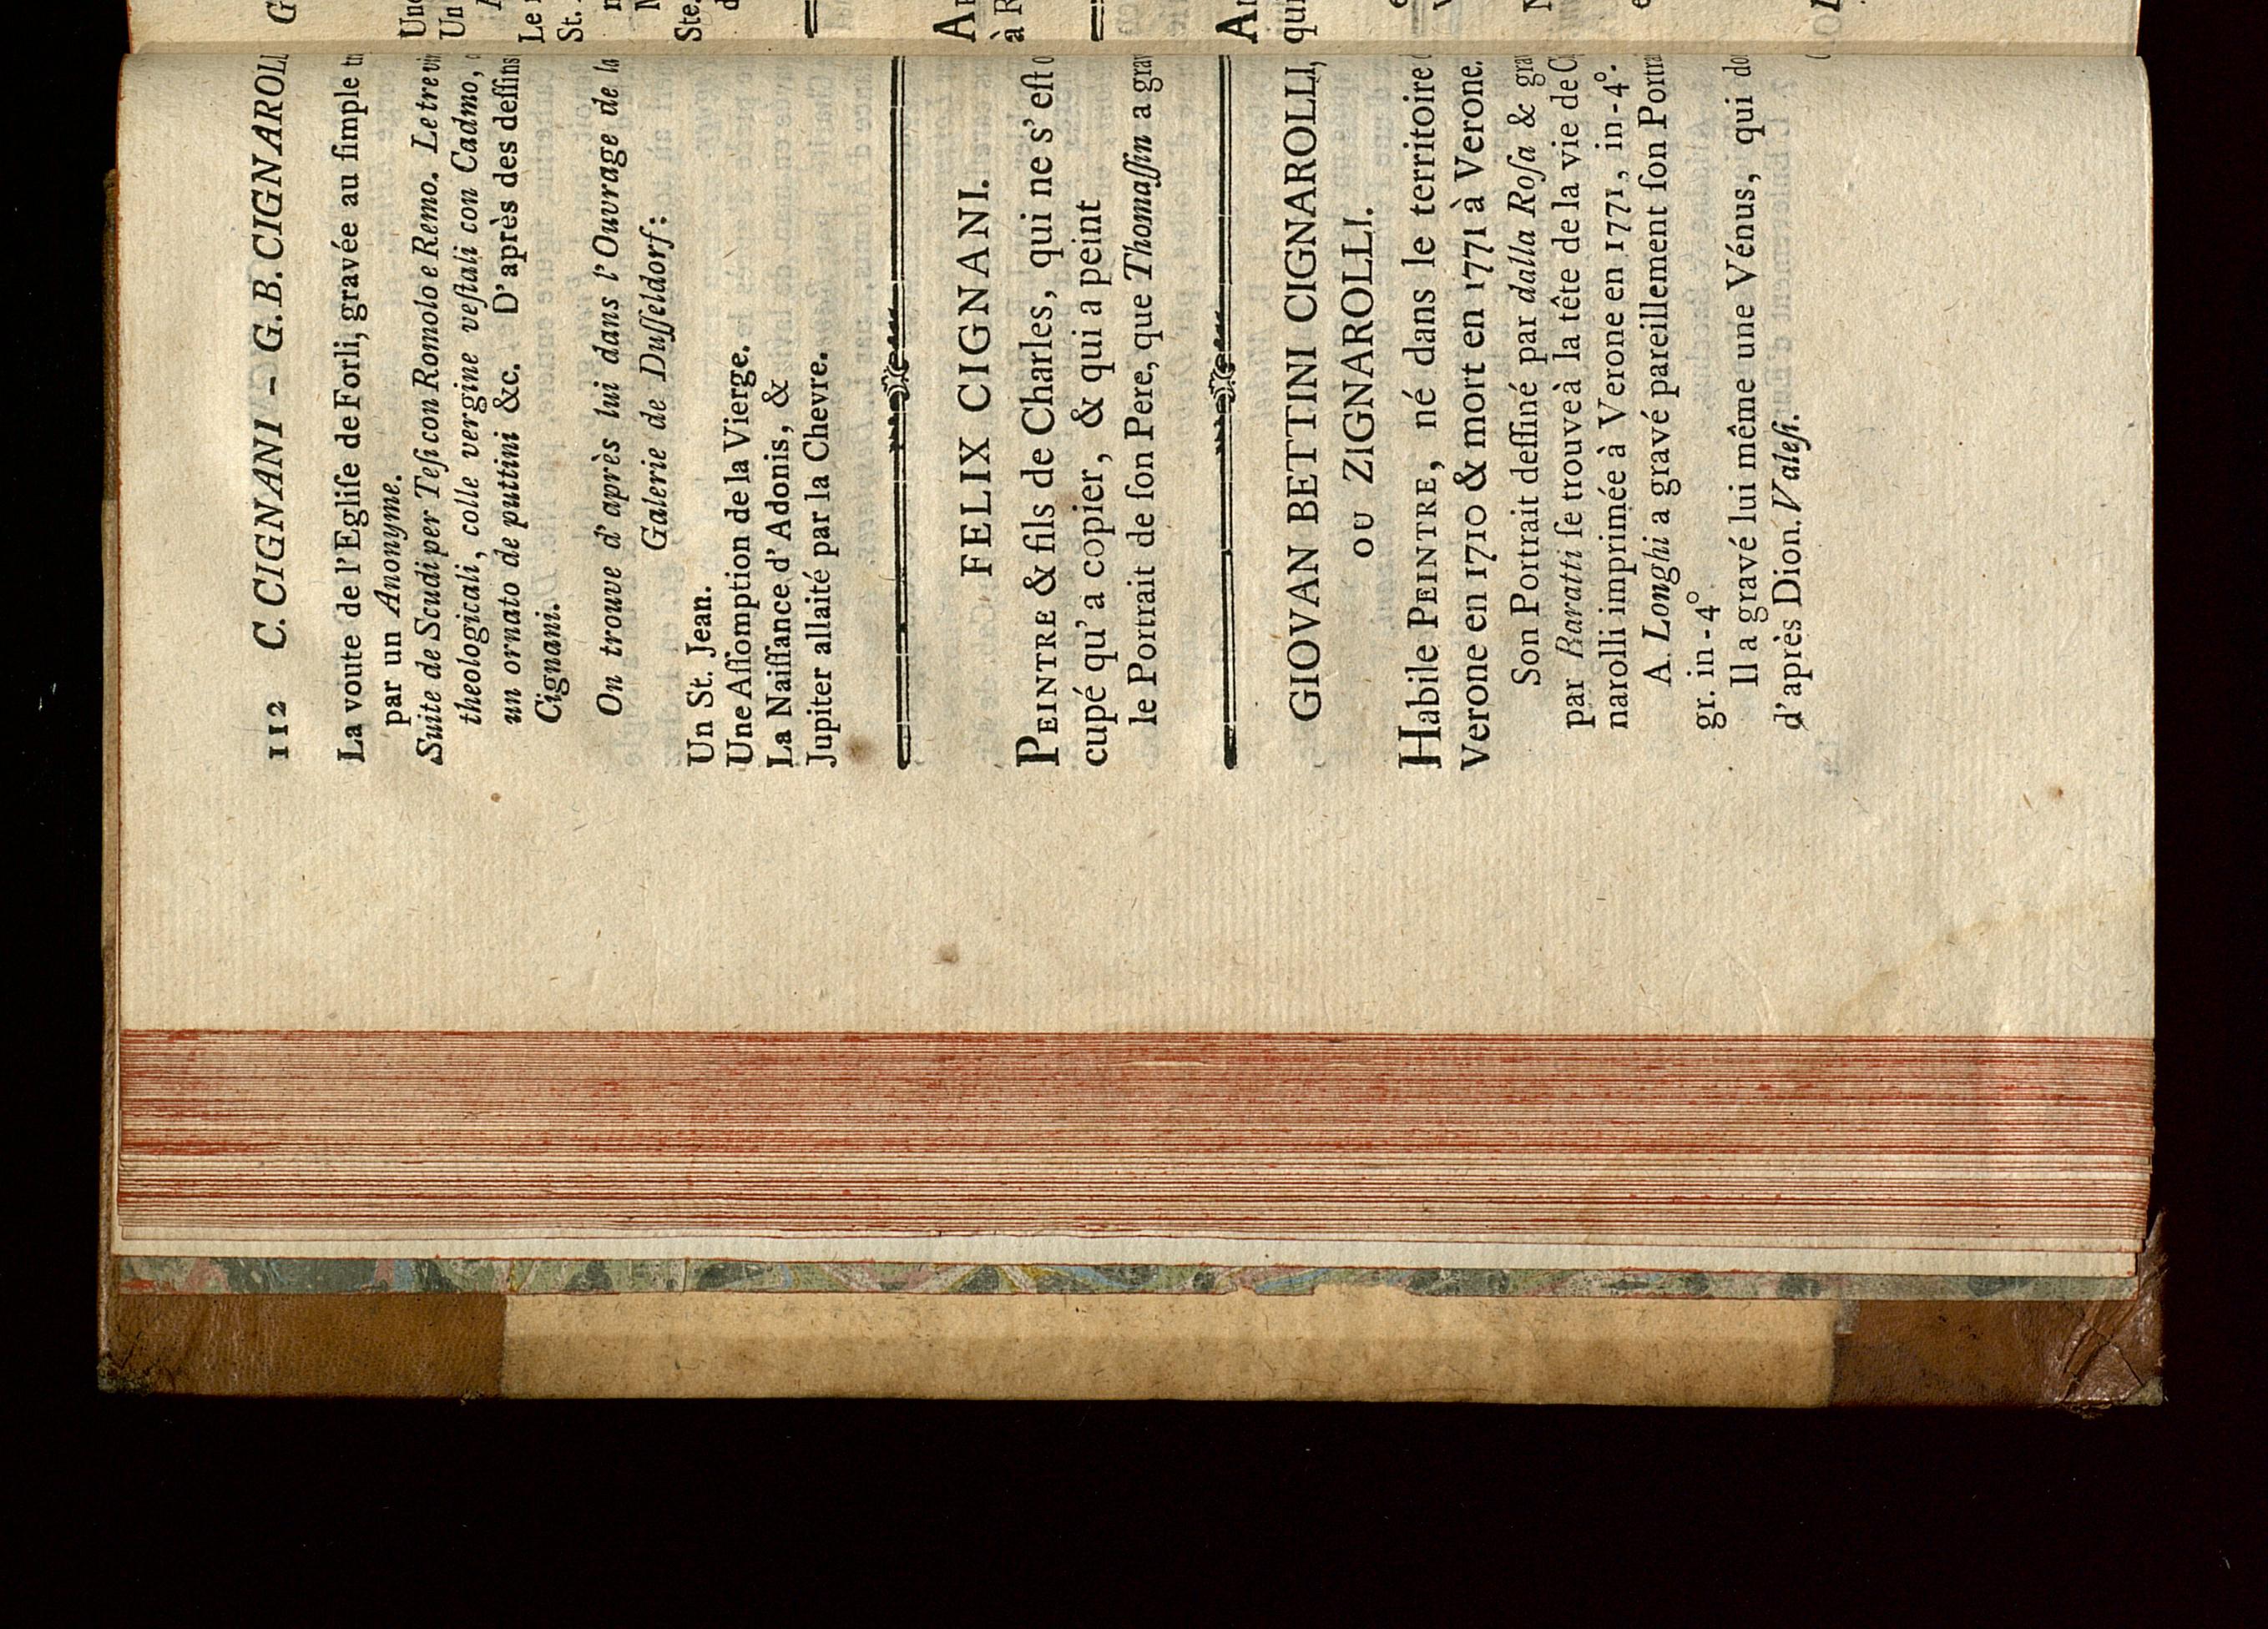 112 C. CIGNANI - G. B. CIGNAROLI
La voute de l'Egliſe de Forli, gravée au ſimple
par un Anonyme.
Suite de Scudi per Teſi con Romolo e Remo. Le tre
theologicali, colle vergine veſtali con Cadmo,
un ornato de puttini &c. D'après des deſſins
Cignani.
On trouve d'après lui dans l'Ouvrage de la
Galerie de Duſſeldorf:
Un St. Jean.
Une Aſſomption de la Vierge.
La Naiſſance d'Adonis, &
Jupiter allaité par la Chevre.
FELIX CIGNANI.
PEINTRE & fils de Charles, qui ne s'eſt
cupé qu'a copier, & qui a peint
le Portrait de ſon Pere, que Thomaſſin a
GIOVAN BETTINI CIGNAROLLI,
OU ZIGNAROLLI.
Habile PEINTRE, né dans le territoire
Verone en 1710 & mort en 1771 à Verone.
Son Portrait deſſiné par dalla Roſa &
par Baratti ſe trouve à la tête de la vie de
narolli imprimée à Verone en 1771, in-4°.
A. Longhi a gravé pareillement ſon
gr. in-4°
Il a gravé lui même une Vénus, qui
d'après Dion. Valeſi.
Le
St.
Ste.
à